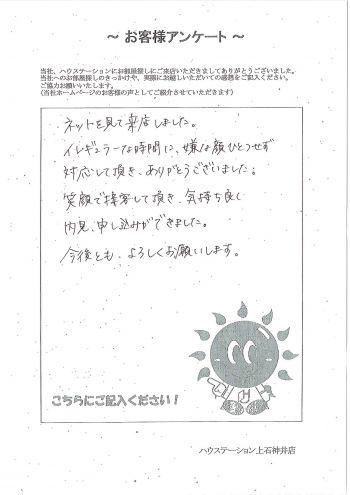 ～ お客様アンケート ～
当社、ハウステーションにお部屋探しにご来店いただきましてありがとうございました。
当社へのお部屋探しのきっかけや、実際にお越しいただいての感想をご記入ください。
ご協力お願いいたします。
(当社ホームページのお客様の声としてご紹介させていただきます)
ネットを見て来店しました。
イレギュラーな時間に、嫌な顔ひとつせず
対応して頂き、ありがとうございました。
笑顔で接客して頂き、気持ち良く
内見、申し込みができました。
今後とも、よろしくお願いします。
こちらにご記入ください!
ハウステーション上石神井店